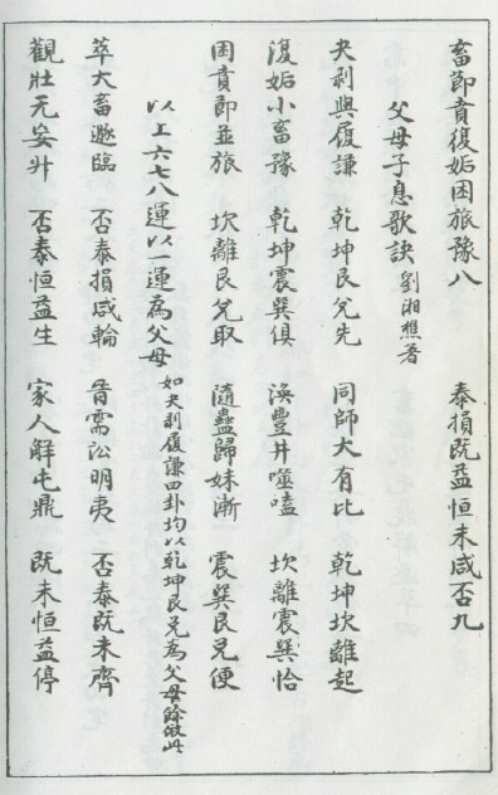 畜節賁復姤困旅豫八 泰損既益恒未咸否九
父母子息歌訣 劉湘樵著
夬剥與履謙 乾坤艮兌先 同師大有比 乾坤坎離起
復姤小畜豫 乾坤震巽俱 渙豐井噬嗑 坎離震巽恰
困賁節並旅 坎離艮兌取 隨蠱歸妹漸 震巽艮兌便
以上六七八運以一運為父母 如夬剥履謙四卦均以乾坤艮兌為父母餘倣此
萃大畜遯臨 否泰損咸輪 晋需訟明夷 否泰既未齊
觀壯无妄升 否泰恒益生 家人解屯鼎 既未恒益停